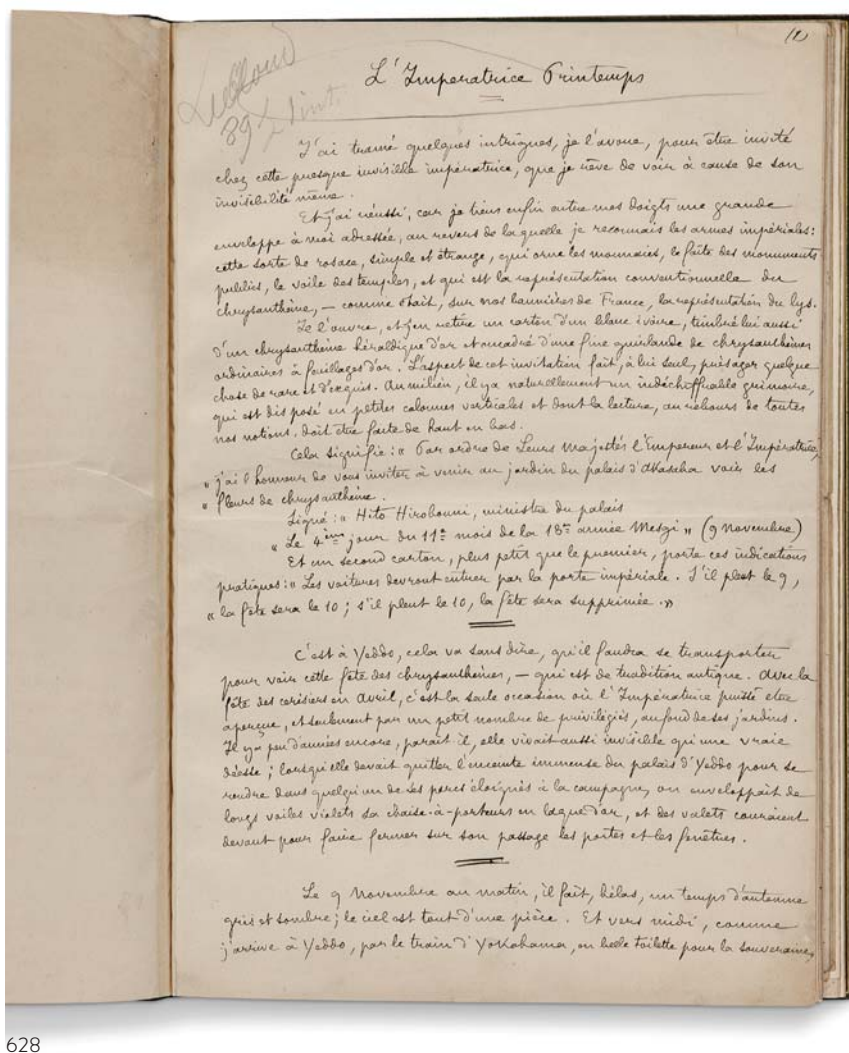 10
Leblond
39
L'Imperatrice Printemps
J'ai tramé quelques intrigues, je l'avoue, pour être invité
chez cette presque invisible impératrice, que je rêve de voir à cause de son
invisibilité même.
Et j'ai réussi, car je tiens enfin entre mes doigts une grande
enveloppe à moi adressée, au revers de laquelle je reconnais les armes impériales:
cette sorte de rosace, simple et étrange, qui orne les monnaies, le faîte des monuments
publics, le voile des temples, et qui est la représentation conventionnelle du
chrysanthème, — comme était, sur nos bannières de France, la représentation du lys.
Je l'ouvre, et j'en retire un carton d'un blanc ivoire, timbré lui aussi
d'un chrysanthème héraldique d'or et encadré d'une fine guirlande de chrysanthèmes
ordinaires à feuillages d'or. L'aspect de cet invitation fait, à lui seul, présager quelque
chose de rare et d'exquis. Au milieu, il y a naturellement un indéchiffrable grimoire,
qui est disposé en petites colonnes verticales et dont la lecture, au rebours de toutes
nos notions, doit être faite de haut en bas.
Cela signifie: « Par ordre de Leurs Majestés l'Empereur et l'Impératrice,
« j'ai l'honneur de vous inviter à venir au jardin du palais d'Akasaka voir les
« fleurs de chrysanthème.
Signé: « Hito Hirobouni, ministre du palais
« Le 4ème jour du 11e mois de la 18me année Mesgi » (9 Novembre)
Et un second carton, plus petit que le premier, porte ces indications
pratiques: « Les voitures devront entrer par la porte impériale. S'il pleut le 9,
« la fête sera le 10; s'il pleut le 10, la fête sera supprimée. »
C'est à Yeddo, cela va sans dire, qu'il faudra se transporter
pour voir cette fête des chrysanthèmes, — qui est de tradition antique. Avec la
fête des cerisiers en Avril, c'est la seule occasion où l'Impératrice puisse être
aperçue, et seulement par un petit nombre de privilégiés, au fond de ses jardins.
Il y a peu d'années encore, paraît-il, elle vivait aussi invisible qu'une vraie
déesse; lorsqu'elle devait quitter l'enceinte immense du palais d'Yeddo pour se
rendre dans quelqu'un de ses parcs éloignés à la campagne, on enveloppait de
longs voiles violets sa chaise-à-porteurs en laque d'or, et des valets couraient
devant pour faire fermer sur son passage les portes et les fenêtres.
Le 9 Novembre au matin, il fait, hélas, un temps d'automne
gris et sombre; le ciel est tout d'une pièce. Et vers midi, comme
j'arrive à Yeddo, par le train d'Yokohama, en belle toilette pour la souveraine,
628